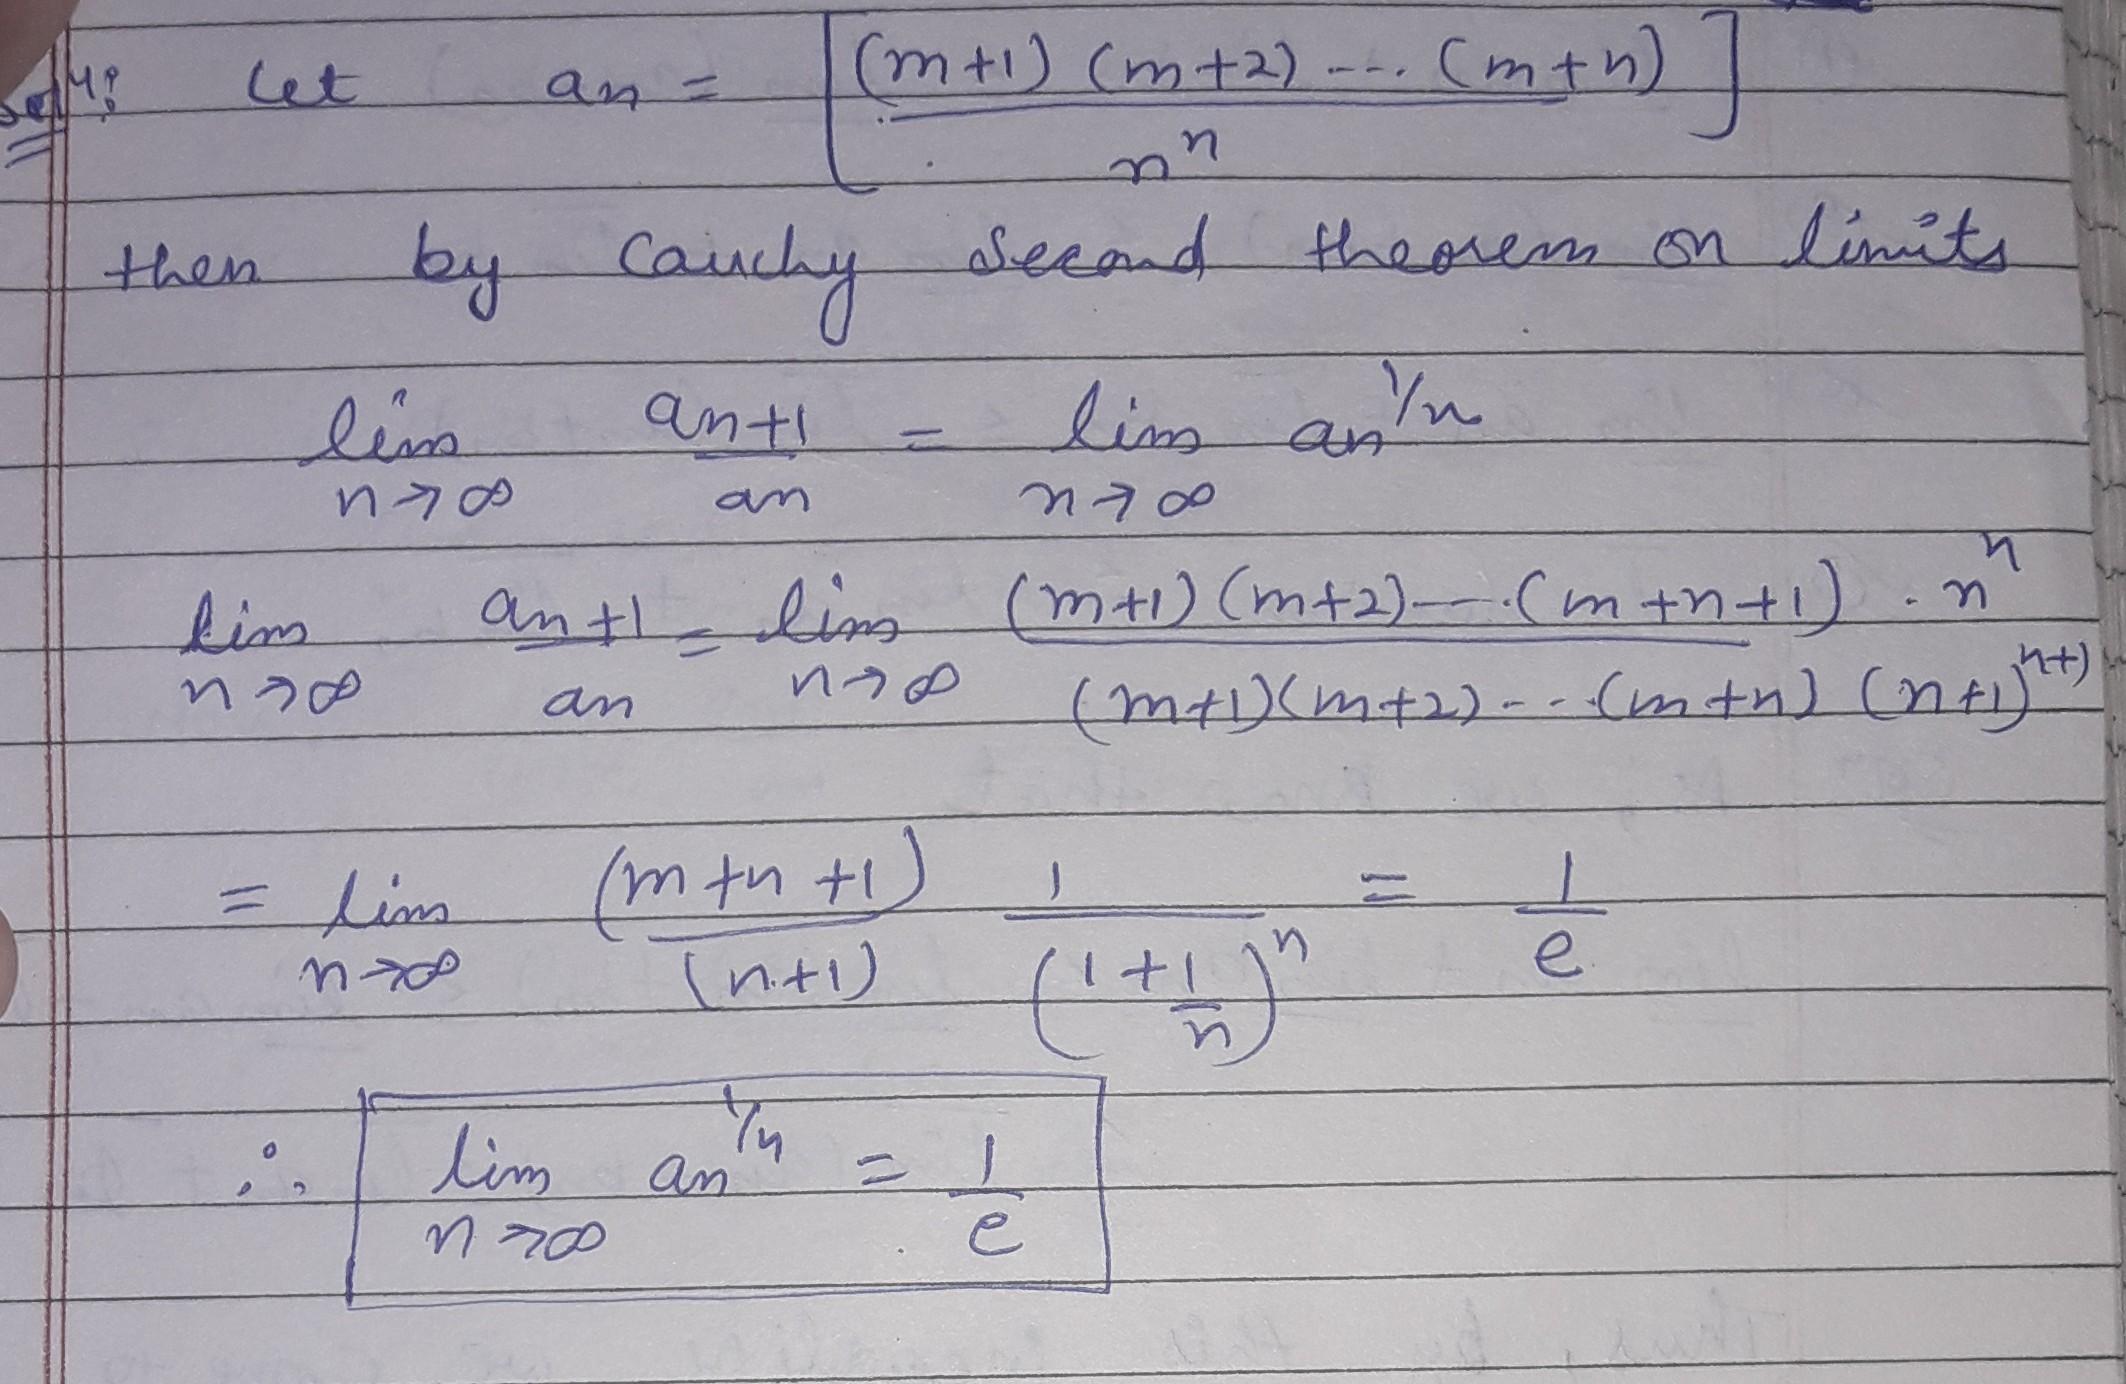 Sol 4: Let an = [(m+1) (m+2) ---. (m+n) / n^n]
then by Cauchy Second theorem on limits
lim n→∞ an+1 / an = lim n→∞ an^1/n
lim n→∞ an+1 / an = lim n→∞ (m+1) (m+2)---.(m+n+1) . n^n / (m+1)(m+2)---.(m+n) (n+1)^n+1
= lim n→∞ (m+n+1) / (n+1) 1 / (1+1/n)^n = 1/e
∴ lim n→∞ an^1/n = 1/e